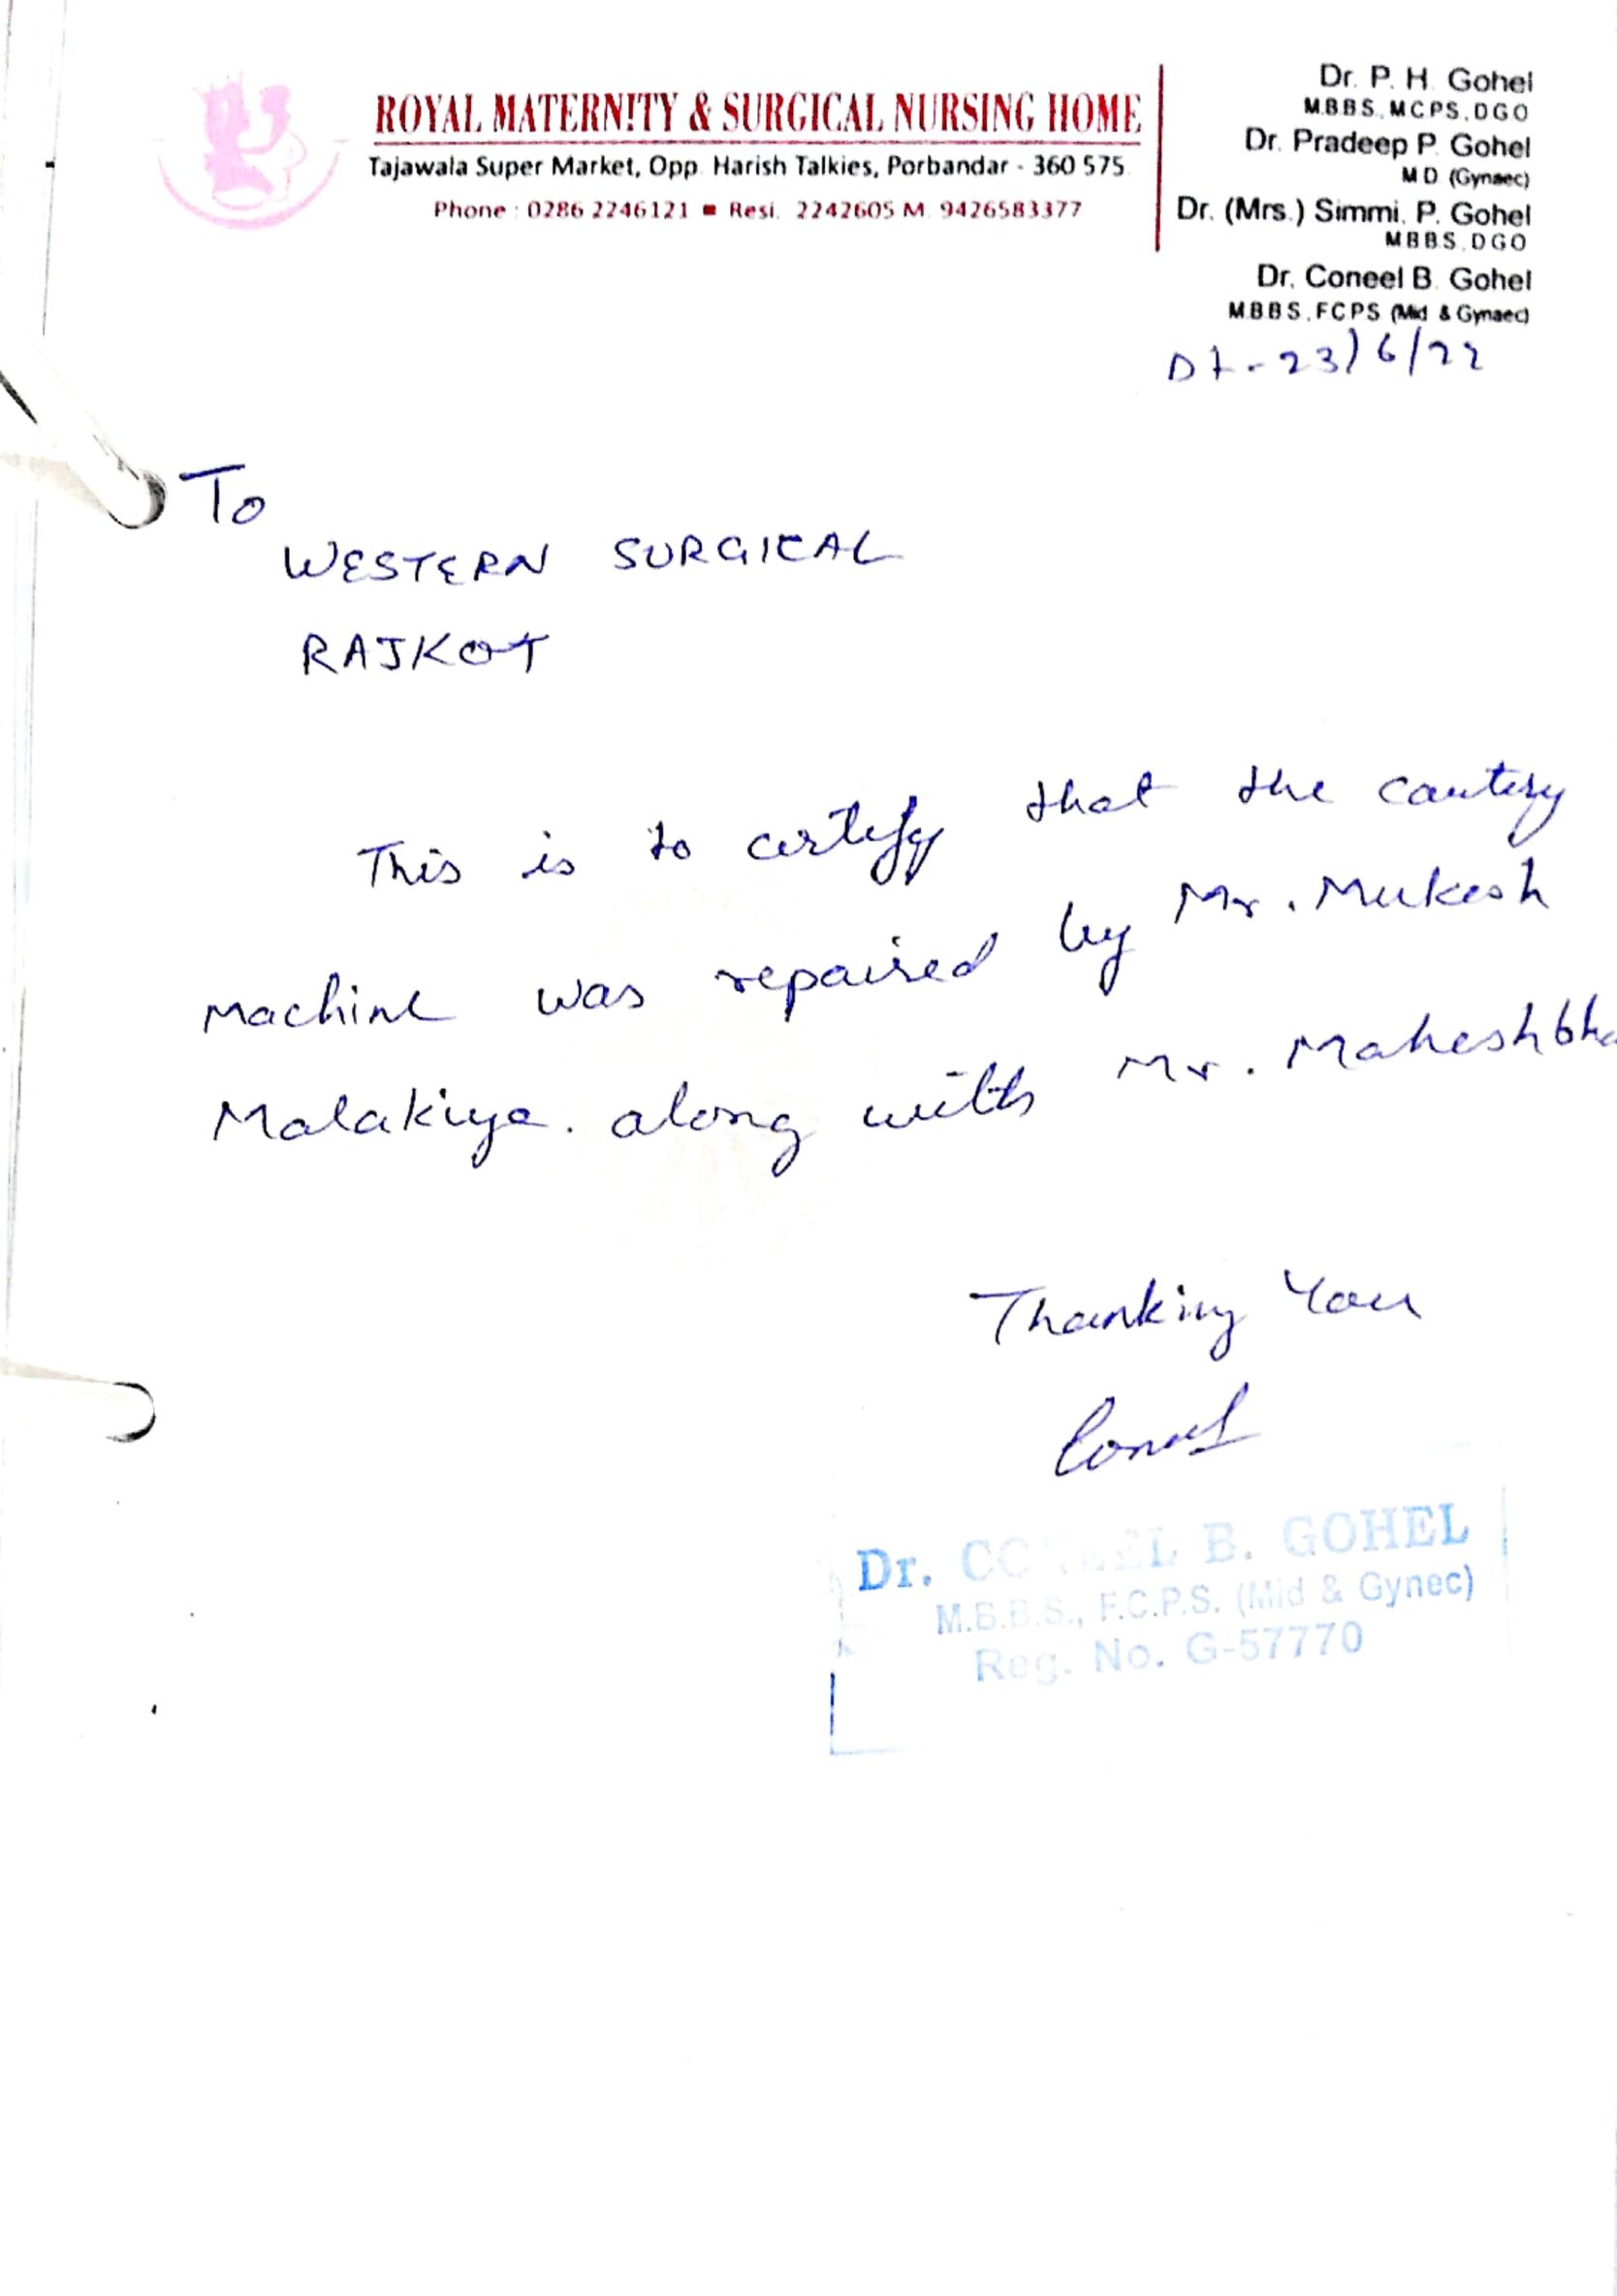 ROYAL MATERNITY & SURGICAL NURSING HOME
Tajawala Super Market, Opp. Harish Talkies, Porbandar - 360 575.
Phone : 0286 2246121 ■ Resi. 2242605 M. 9426583377
Dr. P. H. Gohel
M.B.B.S., M.C.P.S., D.G.O
Dr. Pradeep P. Gohel
M.D. (Gynaec)
Dr. (Mrs.) Simmi. P. Gohel
M.B.B.S., D.G.O
Dr. Coneel B. Gohel
M.B.B.S., F.C.P.S. (Mid & Gynaec)
Dt - 23/6/22
To
WESTERN SURGICAL
RAJKOT
This is to certify that the cautery
machine was repaired by Mr. Mukesh
Malakiya. along with Mr. Maheshbha
Thanking You
Coneel
Dr. CONEEL B. GOHEL
M.B.B.S., F.C.P.S. (Mid & Gynec)
Reg. No. G-57770